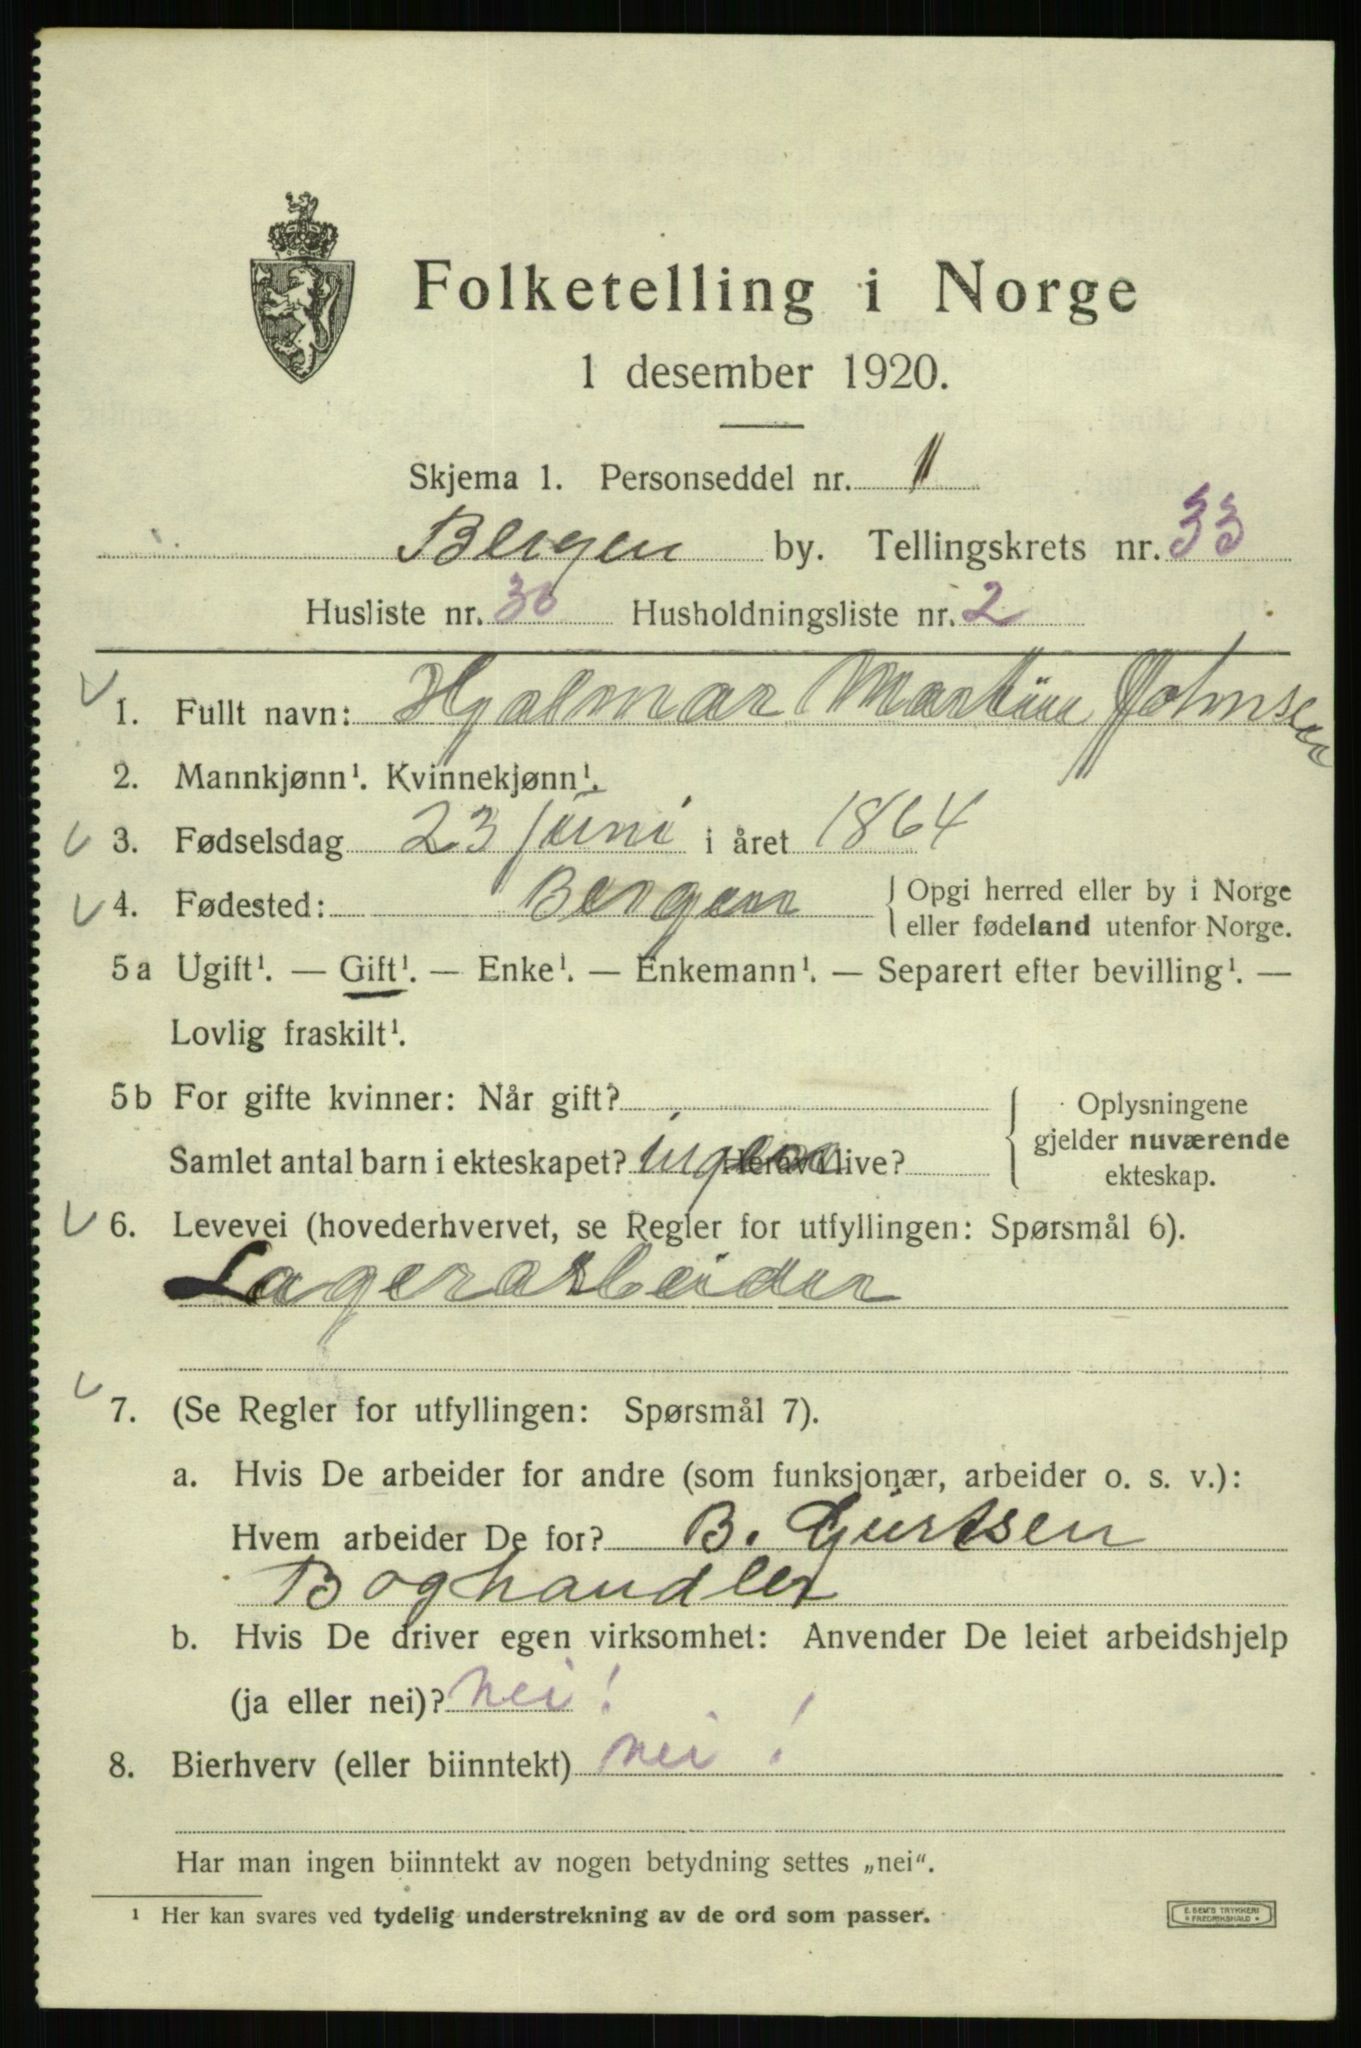 Folketelling i Norge
1 desember 1920.
Skjema 1. Personseddel nr. 1
Bergen by. Tellingskrets nr. 33
Husliste nr. 30 Husholdningsliste nr. 2
1. Fullt navn: Hjalmar Martin Johnsen
2. Mannkjønn¹. Kvinnekjønn¹.
3. Fødselsdag 23 juni i året 1864
4. Fødested: Bergen { Opgi herred eller by i Norge
eller fødeland utenfor Norge.
5a Ugift¹. — Gift¹. — Enke¹. — Enkemann¹. — Separert efter bevilling¹. —
Lovlig fraskilt¹.
5b For gifte kvinner: Når gift? { Oplysningene
gjelder nuværende
ekteskap.
Samlet antal barn i ekteskapet? ingen Herav i live?
6. Levevei (hovederhvervet, se Regler for utfyllingen: Spørsmål 6).
Lagerarbeider
7. (Se Regler for utfyllingen: Spørsmål 7).
a. Hvis De arbeider for andre (som funksjonær, arbeider o. s. v.):
Hvem arbeider De for? B. Giertsen
Boghandler
b. Hvis De driver egen virksomhet: Anvender De leiet arbeidshjelp
(ja eller nei)? nei!
8. Bierhverv (eller biinntekt) nei!
Har man ingen biinntekt av nogen betydning settes „nei“.
¹ Her kan svares ved tydelig understrekning av de ord som passer.
E. SEM'S TRYKKERI
* FREDRIKSHALD *